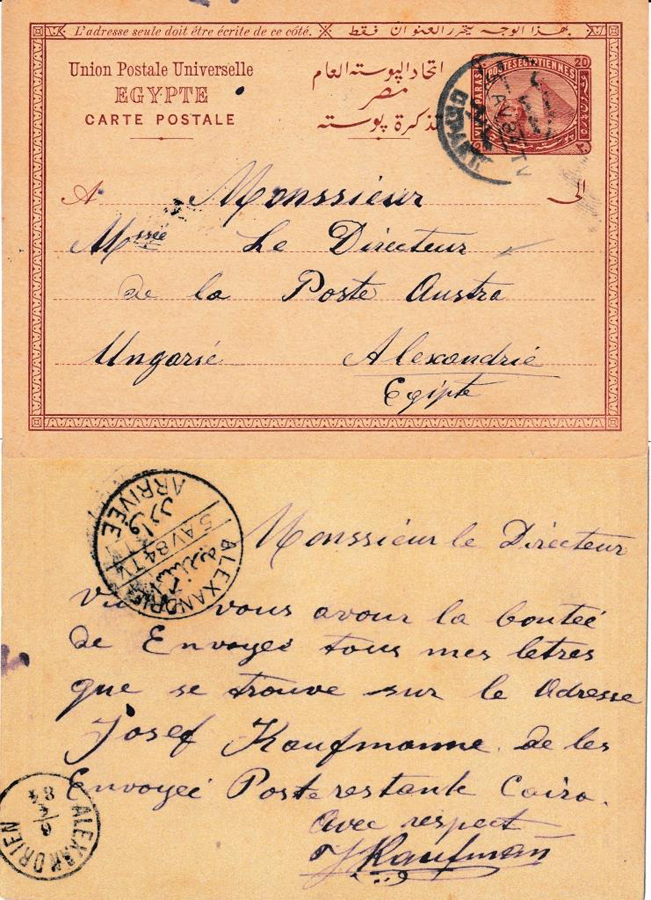 L'adresse seule doit être écrite de ce côté. بهذا الوجه يتحرر العنوان فقط
Union Postale Universelle
EGYPTE
CARTE POSTALE
اتحاد البوسته العام
مصر
تذكرة بوسته
20
POSTES EGYPTIENNES
A Monssieur الى
Le Directeur
de la Poste Austra
Ungarie Alexandrie
Egipte
ARRIVÉE
وارد
5 AV 84 T
ALEXANDRIE
Monssieur le Directeur
vous avour la boutéé
de Envoyéé tous mes letres
que se trouve sur le Adresse
Josef Kaufmanne de les
Envoyéé Poste restante Cairo.
Avec respect
J Kaufman
ALEXANDRIEN